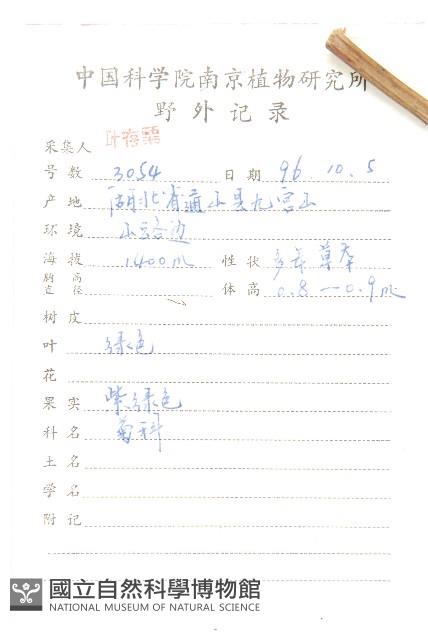 中国科学院南京植物研究所
野外记录
采集人 叶存粟
号数 3054 日期 96.10.5
产地 湖北省通山县九宫山
环境 山谷边
海拔 1400m 性状 多年草本
胸高直径 体高 0.8—0.9m
树皮
叶 绿色
花
果实 紫绿色
科名 菊科
土名
学名
附记
國立自然科學博物館
NATIONAL MUSEUM OF NATURAL SCIENCE